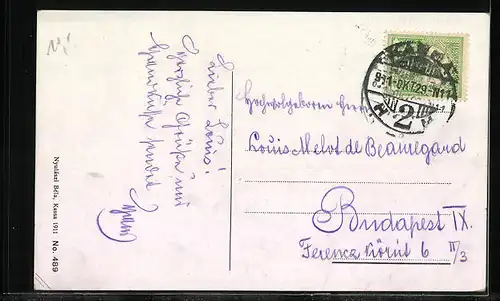 Lieber Louis!
Herzliche Grüße und
Handkuß sendet
Nyulászi Béla, Kassa 1911 No. 489
KASSA
911 OKT 29
2
Hochwolgeboren Herrn
Louis Melot de Beauregard
Budapest IX.
Ferencz Körut 6 II/3